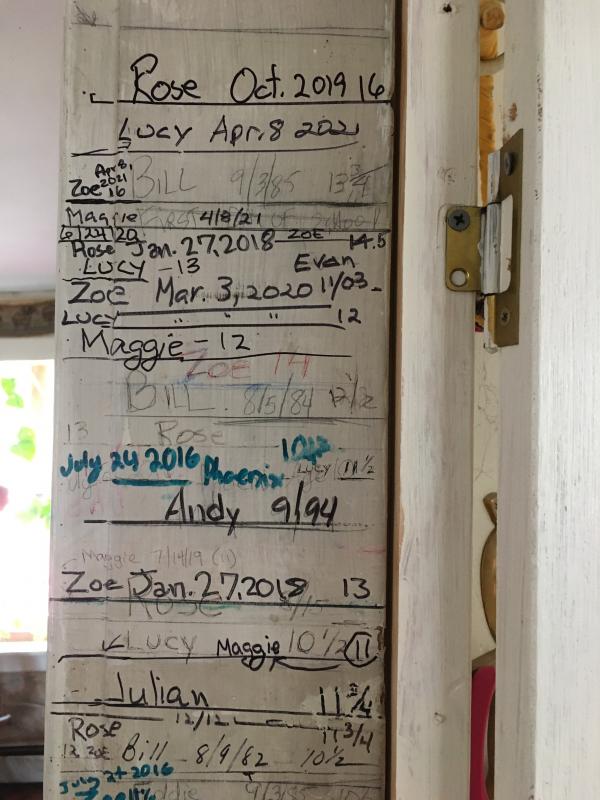 Rose Oct. 2019 16
Lucy Apr. 8 2021
Apr 8, 2021
Zoe 16
BILL 9/3/85 13 3/4
Maggie 4/8/21
6/24/20 ZOE 14.5
Rose Jan. 27, 2018
LUCY - 13 Evan
Zoe Mar. 3, 2020 11/03
LUCY " " " 12
Maggie - 12
Zoe 14
BILL 8/5/84 12 1/2
13 Rose
July 24 2016 Phoenix 10 1/2
Lucy 11 1/2
Andy 9/94
Maggie 7/14/19 (11)
Zoe Jan. 27, 2018 13
ROSE
LUCY Maggie 10 1/2 11
Julian 11 3/4
Rose 12/12 11 3/4
12 ZOE Bill 8/9/82 10 1/2
July 24 2016
9/3/85